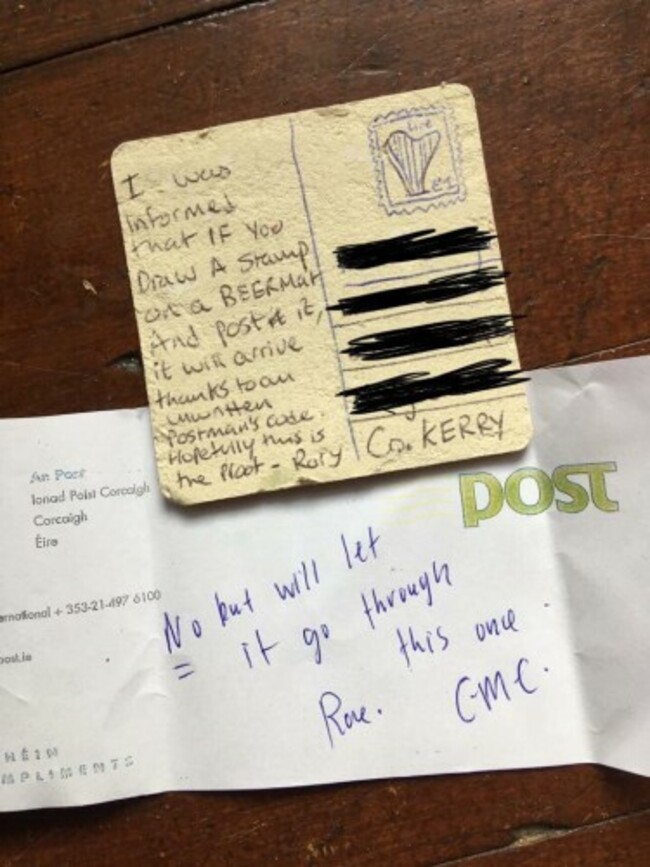 I was
informed
that IF You
Draw A Stamp
on a BEERMat
And post it,
it will arrive
thanks to an
unwritten
Postman's code.
Hopefully this is
the Proof - Rory
Eire
€1
Co. KERRY
An Post
Ionad Poist Corcaigh
Corcaigh
Éire
ernational + 353-21-497 6100
post.ie
HÉIM
MPLIMENTS
post
No but will let
it go through
this once
CMC.